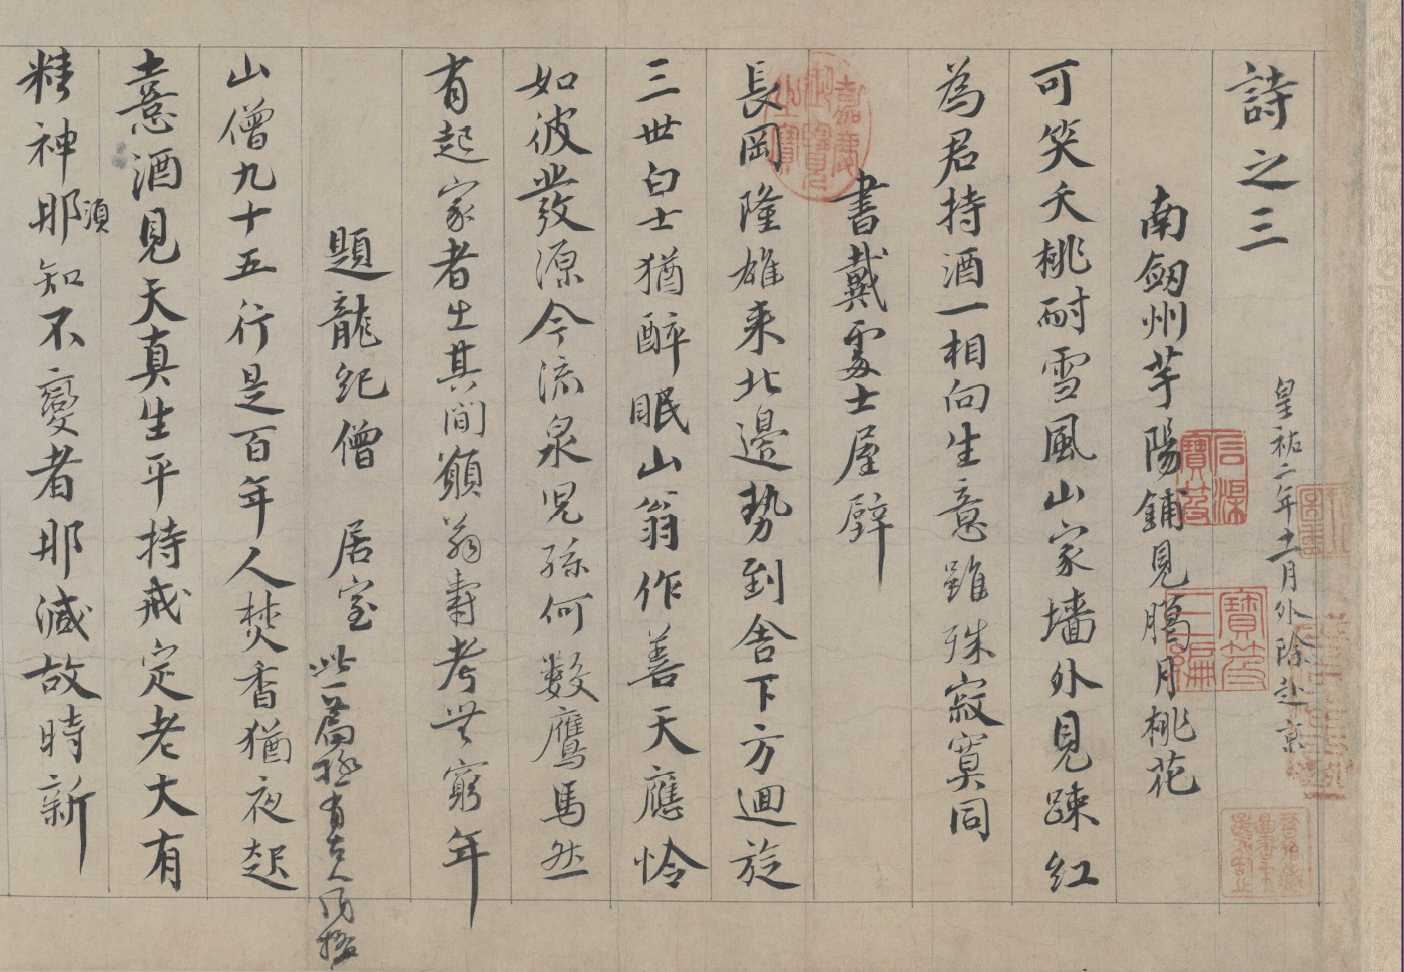 詩之三
皇祐二年十一月外除赴京
南劔州芋陽鋪見臘月桃花
可笑夭桃耐雪風山家墻外見踈紅
為君持酒一相向生意雖殊寂寞同
書戴處士屋壁
長岡隆雄來北邊勢到舍下方迴旋
三世白士猶醉眠山翁作善天應憐
如彼發源今流泉児孫何數鷹馬然
有起家者出其間願翁壽考無窮年
題龍紀僧居室
此一篇極有古人風格
山僧九十五行是百年人焚香猶夜起
憙酒見天真生平持戒定老大有
精神那知不變者那減故時新
須